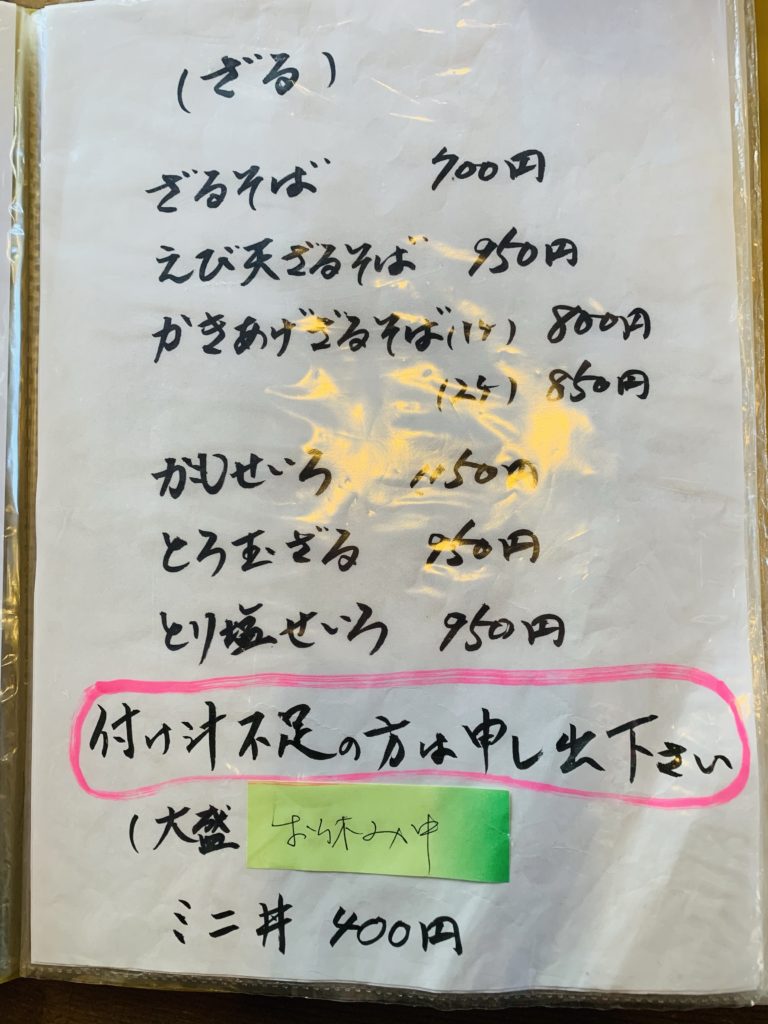 (ざる)
ざるそば 700円
えび天ざるそば 950円
かきあげざるそば(1ケ) 800円
(2ケ) 850円
かもせいろ 1150円
とろ玉ざる 950円
とり塩せいろ 950円
付け汁不足の方は申し出下さい
(大盛 お休み中
ミニ丼 400円